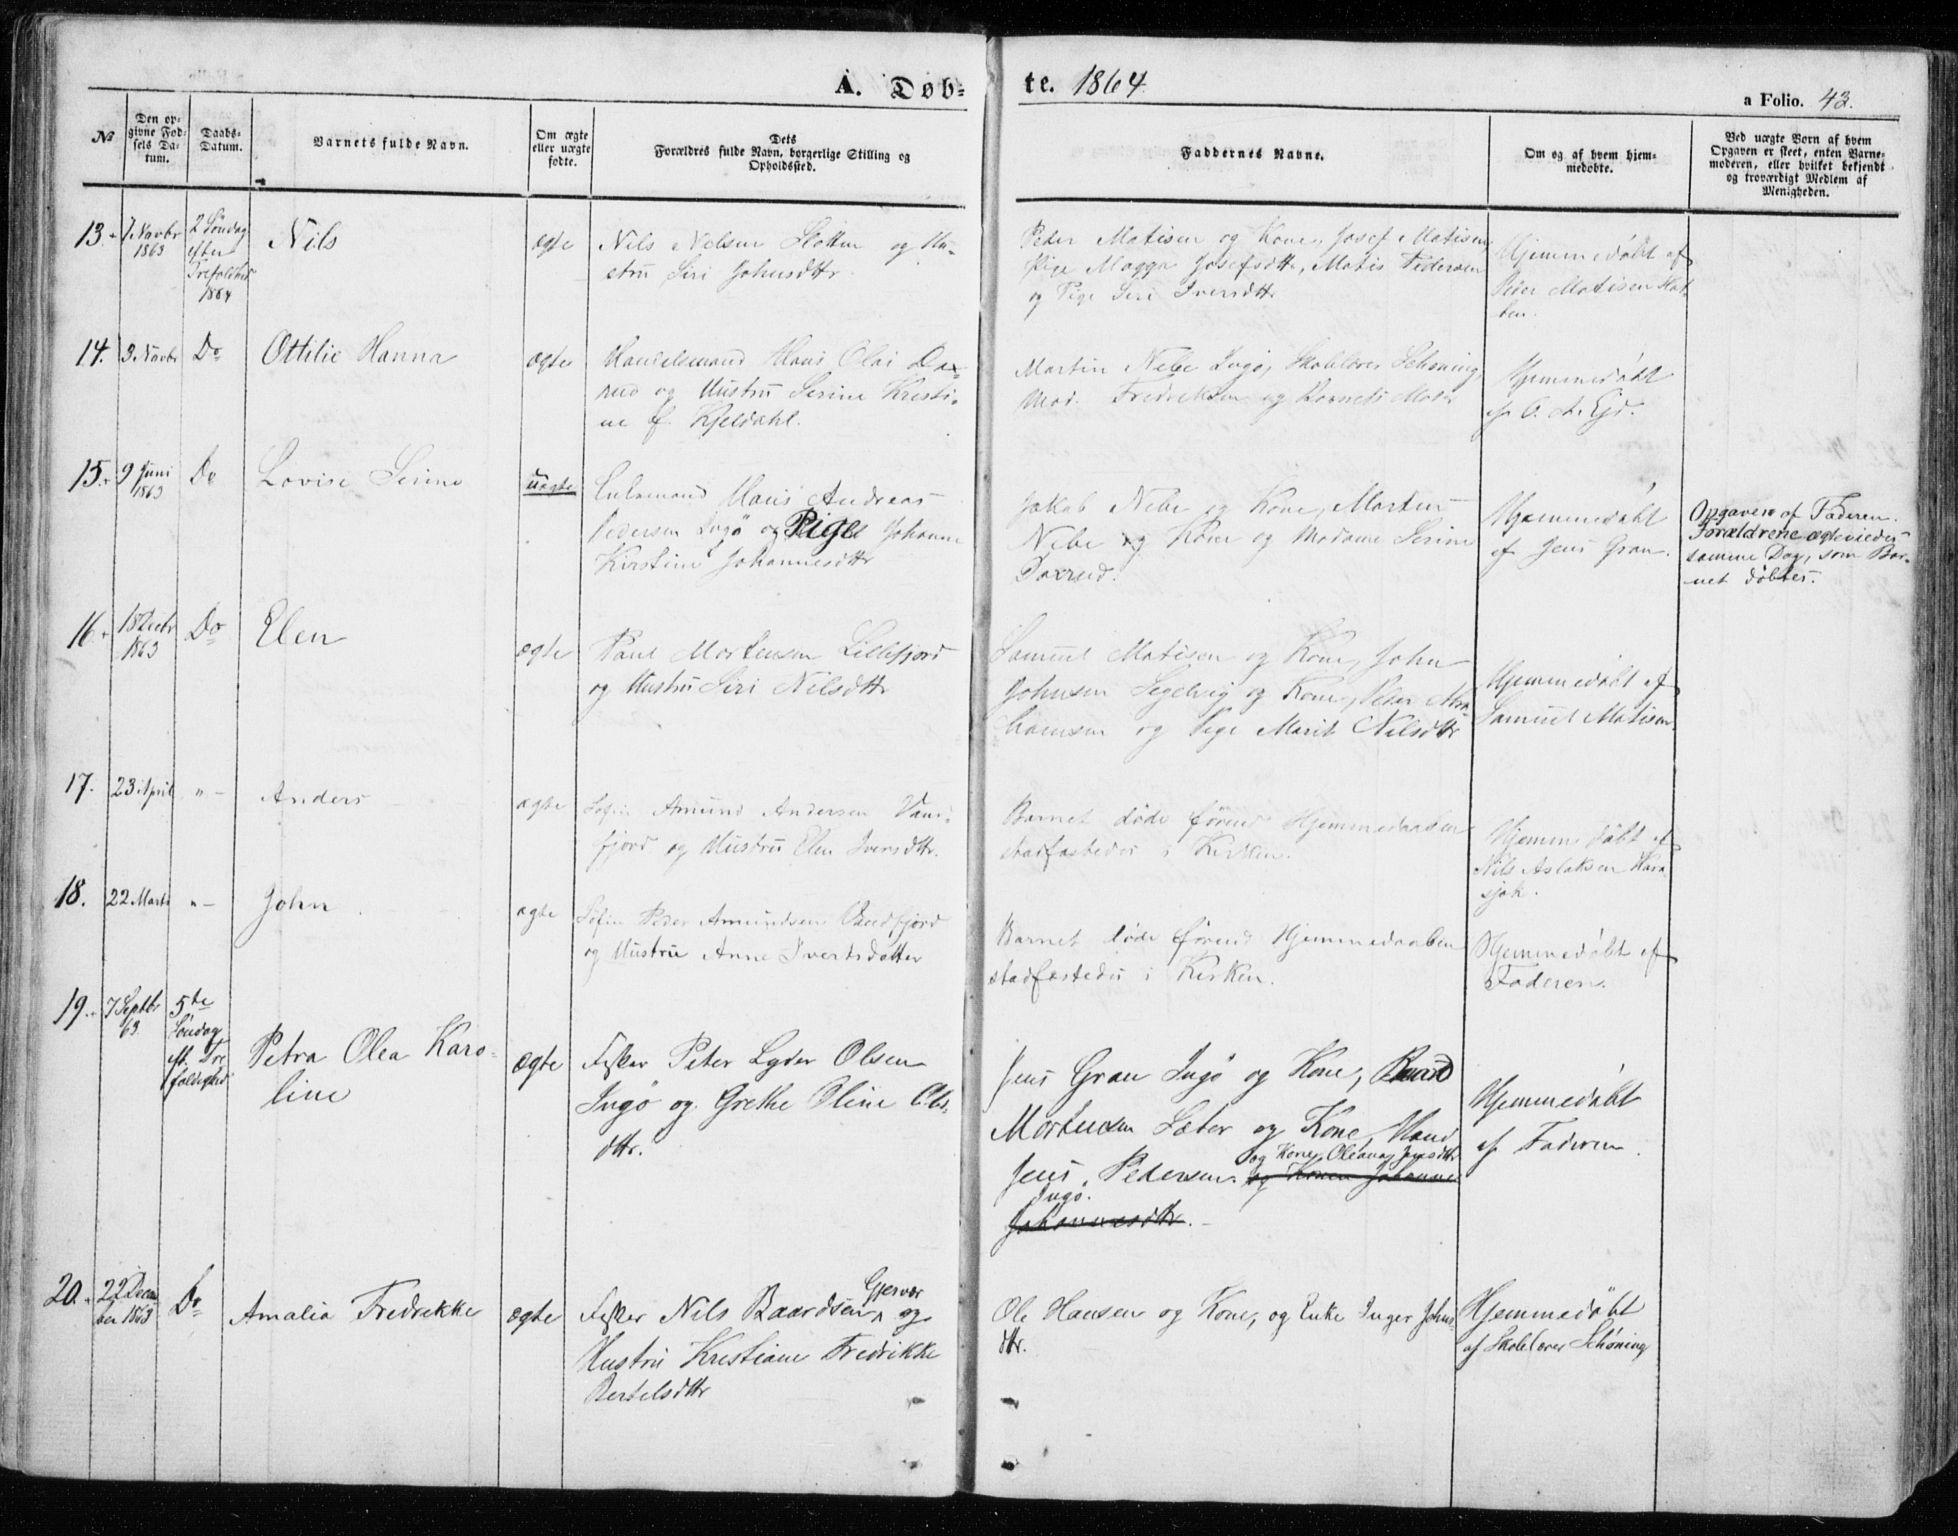 A. Døb-
te. 1864.
a Folio. 43.
No
Den op-
givne Fød-
sels Da-
tum.
Daabs-
Datum.
Barnets fulde Navn.
Om ægte
eller uægte
fødte.
Dets
Forældres fulde Navn, borgerlige Stilling og
Opholdssted.
Faddernes Navne.
Om og af hvem hjem-
medøbte.
Ved uægte Børn af hvem
Opgaven er skeet, enten Barne-
moderen, eller hvilket bekjendt
og troværdigt Medlem af
Menigheden.
13. 7 Novbr
1863
2 Søndag
efter
Trefoldhed
1864
Nils
ægte
Nils Nilsen og Hu-
stru Siri Johnsdttr.
Peder Matisen og Kone, Josef Matisen
Pige Magga Josefsdttr, Matis Pedersen
og Pige Siri Iversdttr
Hjemmedøbt af
Peder Matisen
14. 3 Novbr Do
Ottilie Hanna
ægte
Handelsmand Hans Olai Dax-
rud og Hustru Serine Kristi-
ne f. Kjeldahl.
Martin Nebe Ingø, Skolelærer Schøning,
Mad. Fredriksen og Barnets Moder
Hjemmedøbt
af O. A.
15. 9 Juni
1863
Do
Lovise Serine
uægte
Hans Andreas
Pedersen Ingø og Pige Johanne
Kirstine Johannesdttr
Jakob Nebe og Kone, Morten
Nebe og Kone og Madame Serine
Daxrud.
Hjemmedøbt
af Jens Gran.
Opgaven af Faderen.
Forældrene ægteviedes
samme Dag, som Bar-
net døbtes.
16. 18 Decbr
1863
Do
Elen
ægte
Paul Mortensen Lillefjord
og Hustru Siri Nilsdttr
Samuel Matisen og Kone, John
Johnsen Segelvig og Kone, Peder Abra
hamsen og Pige Marit Nilsdttr
Hjemmedøbt af
Samuel Matisen.
17. 23 April " -
Anders
ægte
Søfin Amund Andersen
fjord og Hustru Elen Iversdttr.
Barnet døde førend Hjemmedaaben
stadfæstedes i Kirken.
Hjemmedøbt af
Nils Aslaksen Kara
sjok.
18. 22 Marts " -
John
ægte
Søfin Peder Amundsen
og Hustru Anne Ivertsdatter
Barnet døde førend Hjemmedaaben
stadfæstedes i Kirken.
Hjemmedøbt af
Faderen.
19. 7 Septbr
63.
5te
Søndag
eft. Tre
foldighed
Petra Olea Karo-
line
ægte
Fisker Peter Lyder Olsen
Ingø og Grethe Oline Ols-
dttr.
Jens Gran Ingø og Kone, Baard
Mortensen Sæter og Kone,
Jens Pedersen og Kone Oleana Jensdttr
Ingø.
og Konen Johanne
Johannesdttr.
Hjemmedøbt
af Faderen.
20. 22 Decem
ber 1863
Do
Amalia Fredrikke
ægte
Fisker Nils Baardsen Gjesvær og
Hustru Kristiane Fredrikke
Bertelsdttr
Ole Hansen og Kone, og Enke Inger Johns-
dttr.
Hjemmedøbt
af Skolelærer Schøning